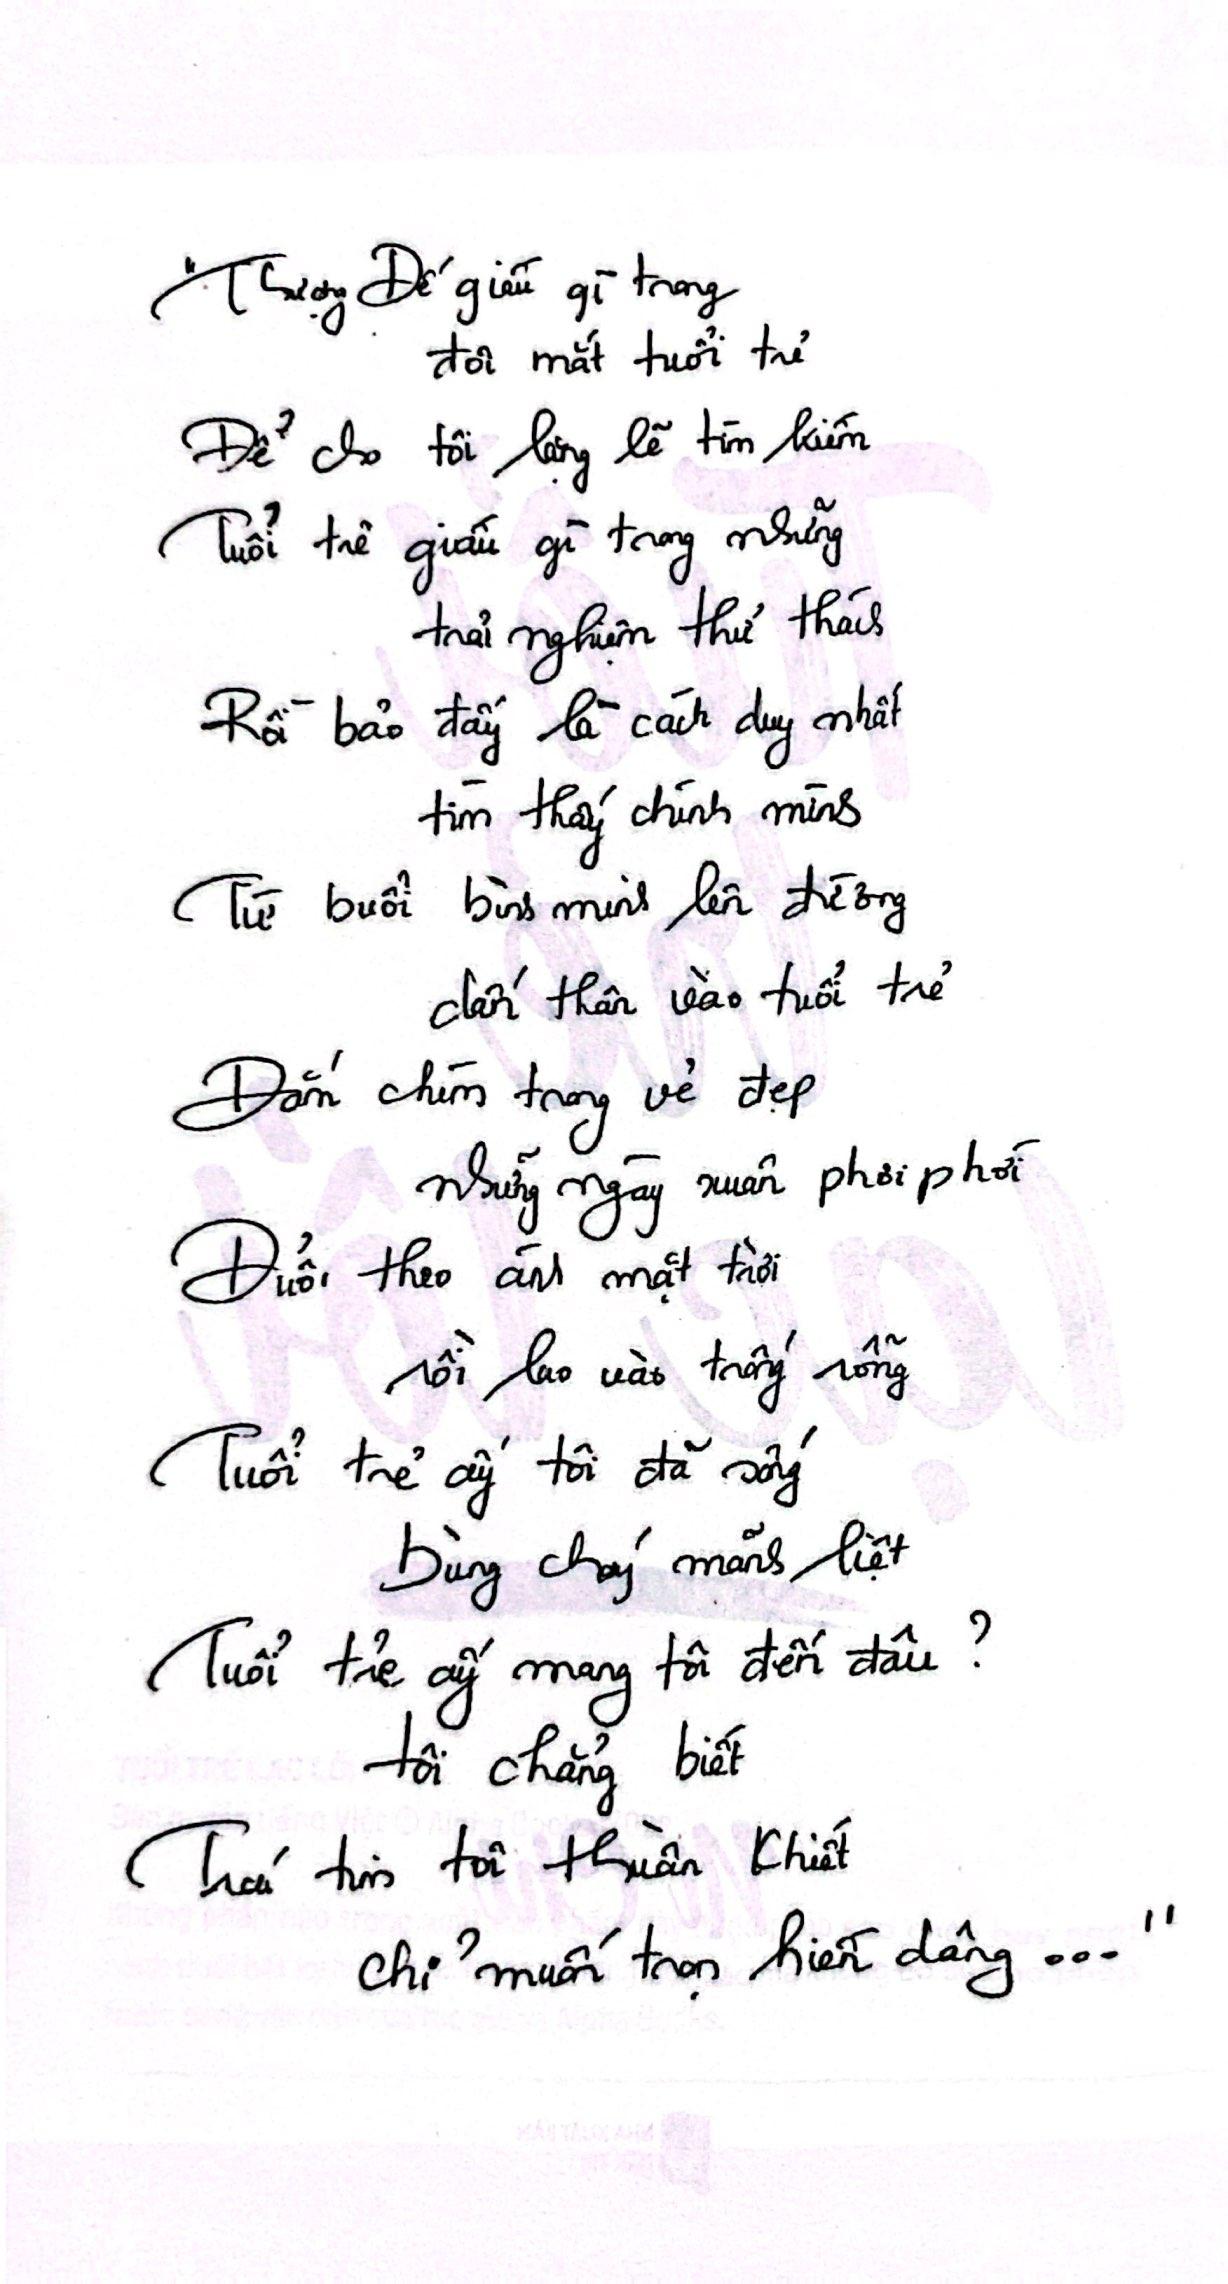 "Thượng Đế giấu gì trong
đôi mắt tuổi trẻ
Để cho tôi lặng lẽ tìm kiếm
Tuổi trẻ giấu gì trong những
trải nghiệm thử thách
Rồi bảo đấy là cách duy nhất
tìm thấy chính mình
Từ buổi bình minh lên đường
dấn thân vào tuổi trẻ
Đắm chìm trong vẻ đẹp
những ngày xuân phơi phới
Đuổi theo ánh mặt trời
rồi lao vào trống rỗng
Tuổi trẻ ấy tôi đã sống
bùng cháy mãnh liệt
Tuổi trẻ ấy mang tôi đến đâu ?
tôi chẳng biết
Trái tim tôi thuần khiết
chỉ muốn trọn hiến dâng ..."